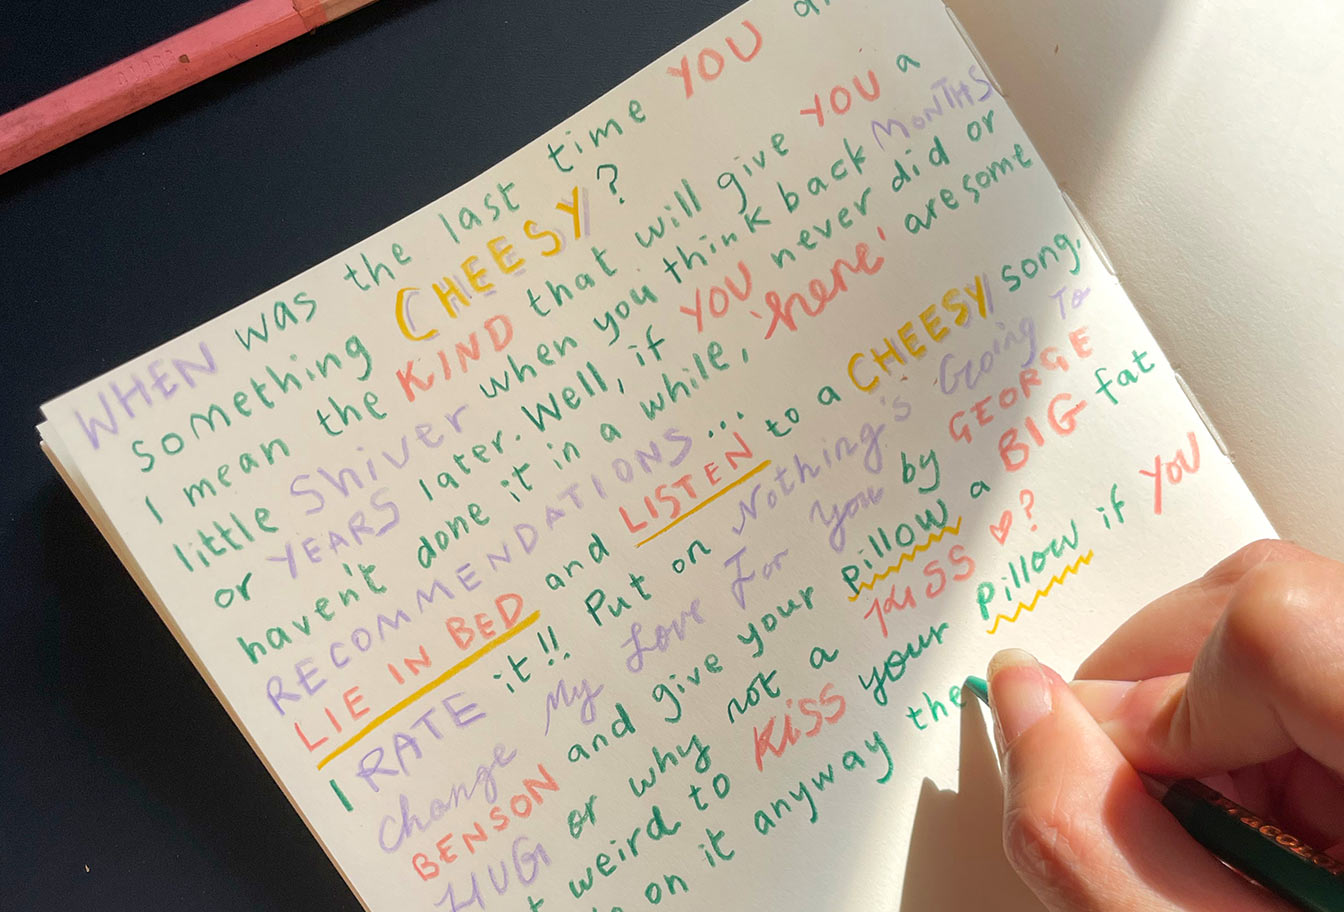 WHEN was the last time YOU
something CHEESY?
I mean the KIND that will give YOU a
little Shiver when you think back MONTHS
or YEARS later. Well, if YOU never did or
haven't done it in a while, 'here' are some
RECOMMENDATIONS...
LIE IN BED and LISTEN to a CHEESY song,
I RATE it!! Put on Nothing's Going To
change My Love For You by GEORGE
BENSON and give your pillow a BIG fat
HUG or why not a KISS ?
weird to KISS your pillow if YOU
on it anyway the